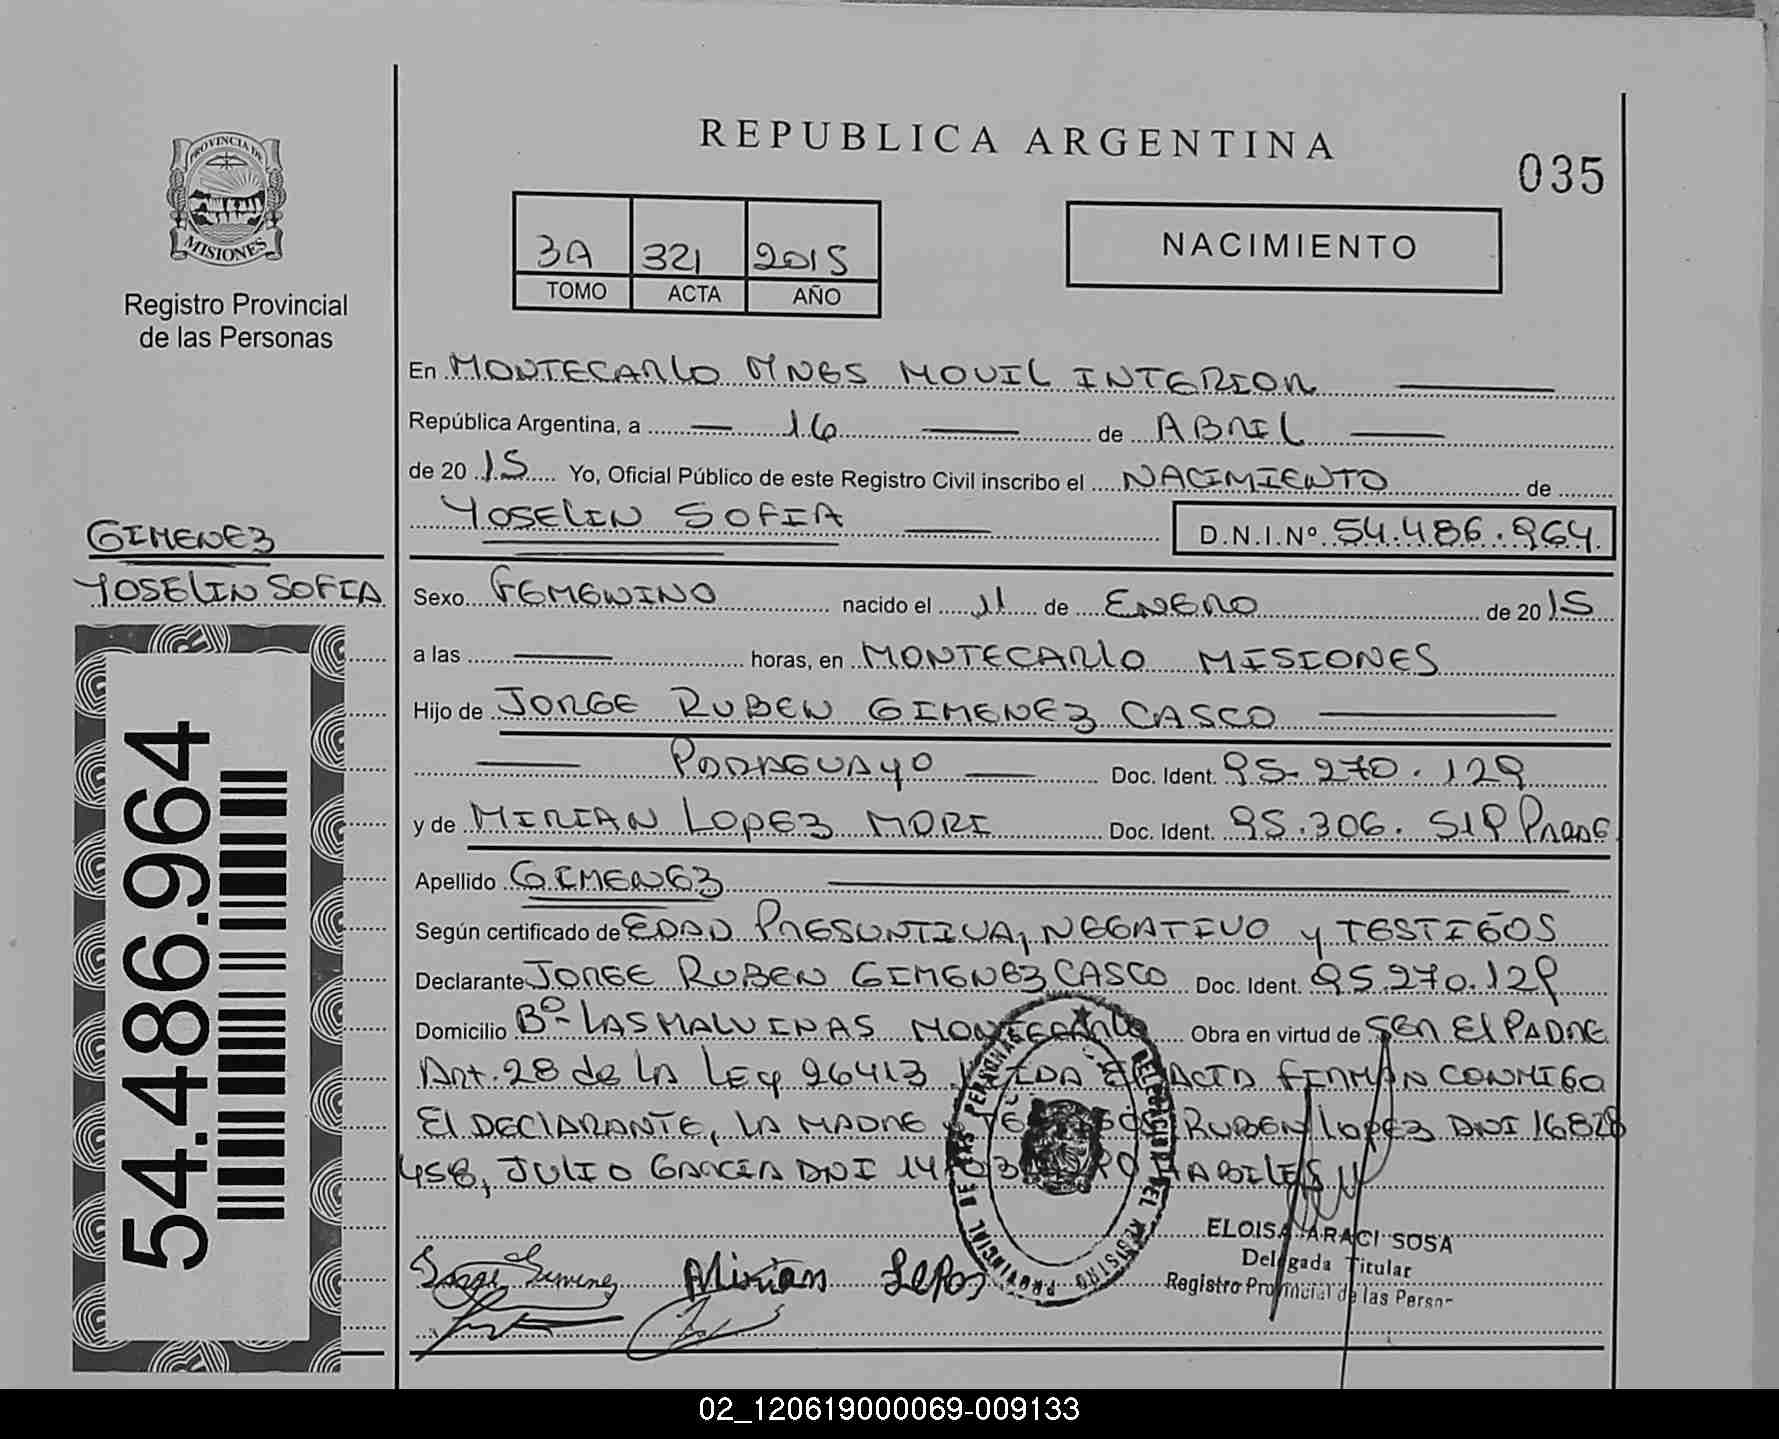 REPUBLICA ARGENTINA
035
PROVINCIA DE
MISIONES
Registro Provincial
de las Personas
3A 321 2015
TOMO ACTA AÑO
NACIMIENTO
En MONTECARLO MNES MOVIL INTERIOR
República Argentina, a 16 de ABRIL
de 2015 Yo, Oficial Público de este Registro Civil inscribo el NACIMIENTO de
YOSELIN SOFIA D.N.I.Nº 54.486.964
GIMENEZ
YOSELIN SOFIA
54.486.964
Sexo FEMENINO nacido el 11 de ENERO de 2015
a las horas, en MONTECARLO MISIONES
Hijo de JORGE RUBEN GIMENEZ CASCO
PARAGUAYO Doc. Ident. 95.270.129
y de MIRIAN LOPEZ MORI Doc. Ident. 95.306.
Apellido GIMENEZ
Según certificado de EDAD PRESUNTIVA, NEGATIVO y TESTIGOS
Declarante JORGE RUBEN GIMENEZ CASCO Doc. Ident. 95.270.129
Domicilio Bº- LAS MALVINAS MONTECARLO Obra en virtud de SER El PADRE
Art. 28 de LA LEY 26413 ACTA FIRMAN CONMIGO
El DECLARANTE, LA MADRE RUBEN LOPEZ DNI 16828
458, JULIO GARCIA DNI 14 HABILES
PROVINCIAL DE LAS PERSONAS
DELEGACION DEL REGISTRO
ELOISA ARACI SOSA
Delegada Titular
Registro Provincial de las Person
Jorge Gimenez Mirian Lopes
02_120619000069-009133